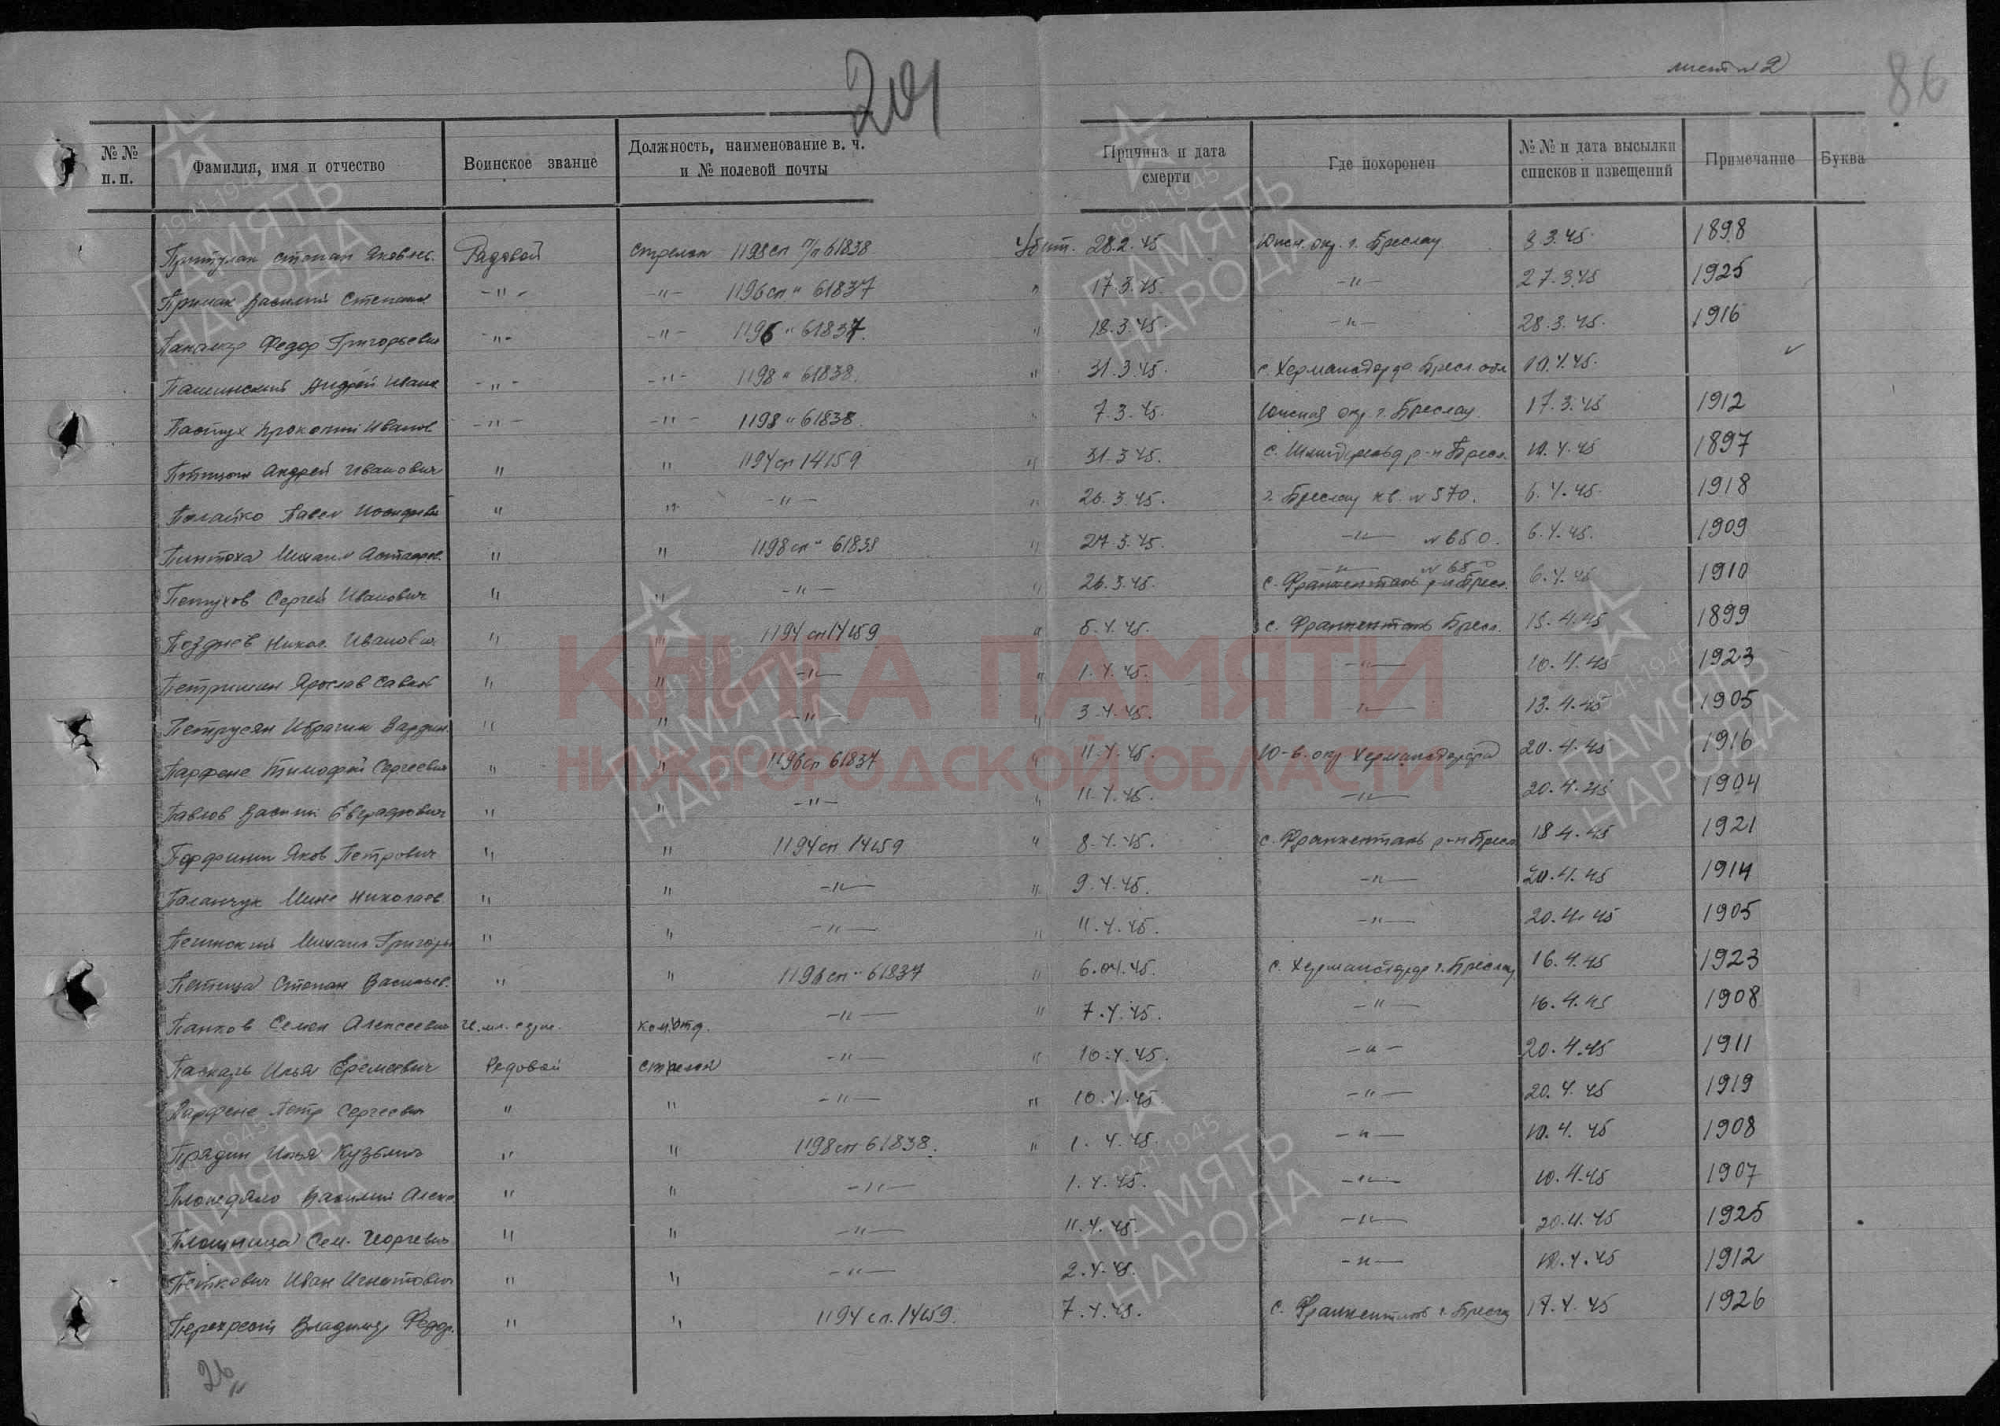 201
лист № 2
86
№№ п. п. Фамилия, имя и отчество Воинское звание Должность, наименование в. ч. и № полевой почты Причина и дата смерти Где похоронен №№ и дата высылки списков и извещений Примечание Буква
Притулак Степан Яковлев. Рядовой стрелок 1198 сп п/п 61838 убит. 28.2.45 Южн. окр. г. Бреслау 8.3.45 1898
Примак Василий Степанов -"- -"- 1196 сп " 61837 " 17.3.45. -"- 27.3.45 1925
Федор Григорьевич -"- -"- 1196 " 61837. " 18.3.45. -"- 28.3.45. 1916
Пашинский Андрей Иване -"- -"- 1198 " 61838. " 31.3.45. с. Бресл. обл 10.4.45.
Пастух Прокопий Иванов -"- -"- 1198 " 61838. " 7.3.45. Южная окр. г. Бреслау 17.3.45 1912
Андрей Иванович " " 1194 сп 14159 " 31.3.45. р-н Бресл. 10.4.45 1897
Павел " " -"- " 26.3.45. г. Бреслау кв. № 570. 6.4.45. 1918
Михаил " " 1198 сп " 61838 " 27.3.45. -"- № 650. 6.4.45. 1909
Петухов Сергей Иванович " " -"- " 26.3.45. -"- № 650 6.4.45 1910
Позднев Никол. Иванович " " 1194 сп 14159 " 5.4.45. с. Франкенталь Бресл. 15.4.45 1899
Ярослав " " -"- " 1.4.45. -"- 10.4.45 1923
Петрусян Ибрагим " " -"- " 3.4.45. -"- 13.4.45 1905
Парфене Тимофей Сергеевич " " 1196 сп 61837 " 11.4.45. Ю-в. окр. 20.4.45 1916
Павлов Василий Евграфович " " -"- " 11.4.45. -"- 20.4.45 1904
Яков Петрович " " 1194 сп 14159 " 8.4.45. с. Франкенталь р-н Бресл 18.4.45 1921
Паламчук Николаев. " " -"- " 9.4.45. -"- 20.4.45 1914
Михаил Григорь " " -"- " 11.4.45. -"- 20.4.45 1905
Степан Васильев. " " 1196 сп " 61837 " 6.04.45. с. г. Бреслау 16.4.45 1923
Панков Семен Алексеевич комотд. -"- " 7.4.45. -"- 16.4.45 1908
Паскарь Илья Еремеевич Рядовой стрелок -"- " 10.4.45. -"- 20.4.45 1911
Парфене Петр Сергеевич " " -"- " 10.4.45. -"- 20.4.45 1919
Прядин Илья Кузьмич " " 1198 сп 61838. " 1.4.45. -"- 10.4.45 1908
Василий Алекс " " -"- 1.4.45. -"- 10.4.45 1907
Площница Сем. Георгевич " " -"- 11.4.45 -"- 20.4.45 1925
Петкевич Иван Игнатович " " -"- 2.4.45. -"- 10.4.45 1912
Перехрест Владимир Федор. " " 1194 сп. 14159. 7.4.45. с. Франкенталь г. Бреслау 17.4.45 1926
26
КНИГА ПАМЯТИ
НИЖЕГОРОДСКОЙ ОБЛАСТИ
1941-1945
ПАМЯТЬ
НАРОДА
1941-1945
ПАМЯТЬ
НАРОДА
1941-1945
ПАМЯТЬ
НАРОДА
1941-1945
ПАМЯТЬ
НАРОДА
1941-1945
ПАМЯТЬ
НАРОДА
1941-1945
ПАМЯТЬ
НАРОДА